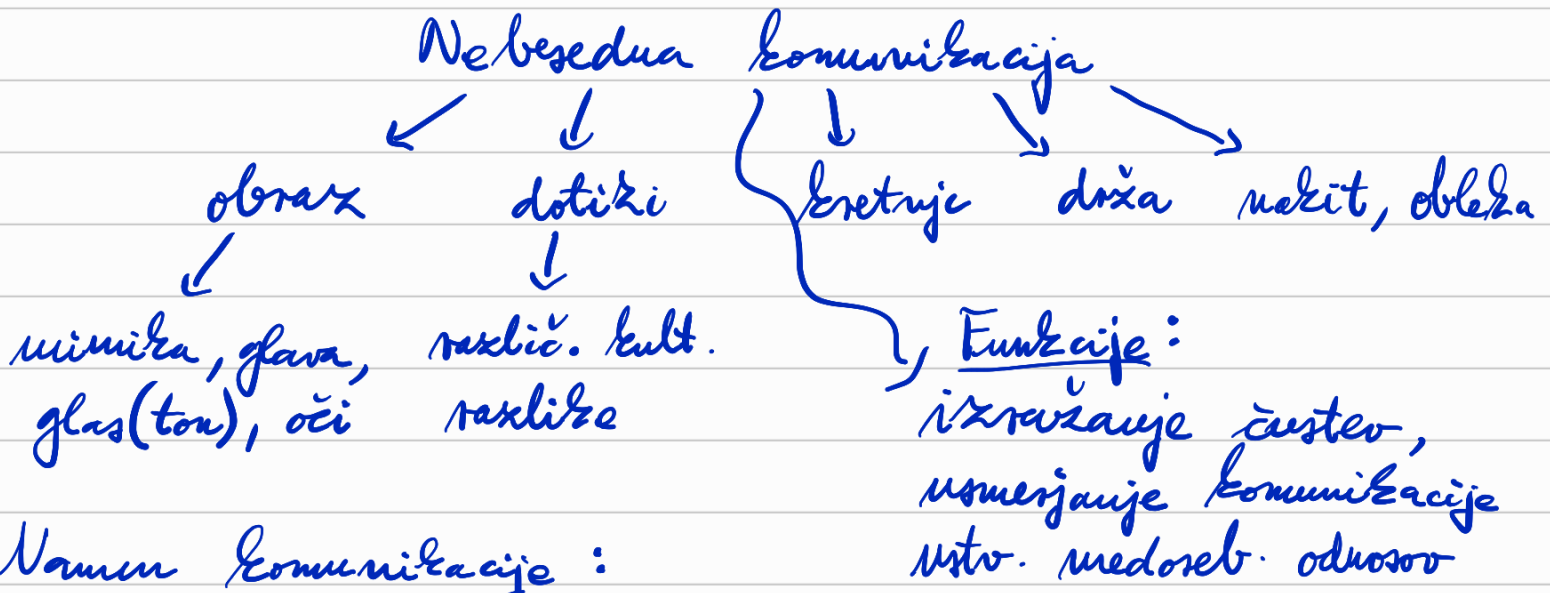 Nebesedna komunikacija
obraz dotiki kretnje drža nakit, obleka
mimika, glava, različ. kult.
glas(ton), oči razlike
Funkcije:
izražanje čustev,
usmerjanje komunikacije
ustv. medoseb. odnosov
Namen komunikacije: